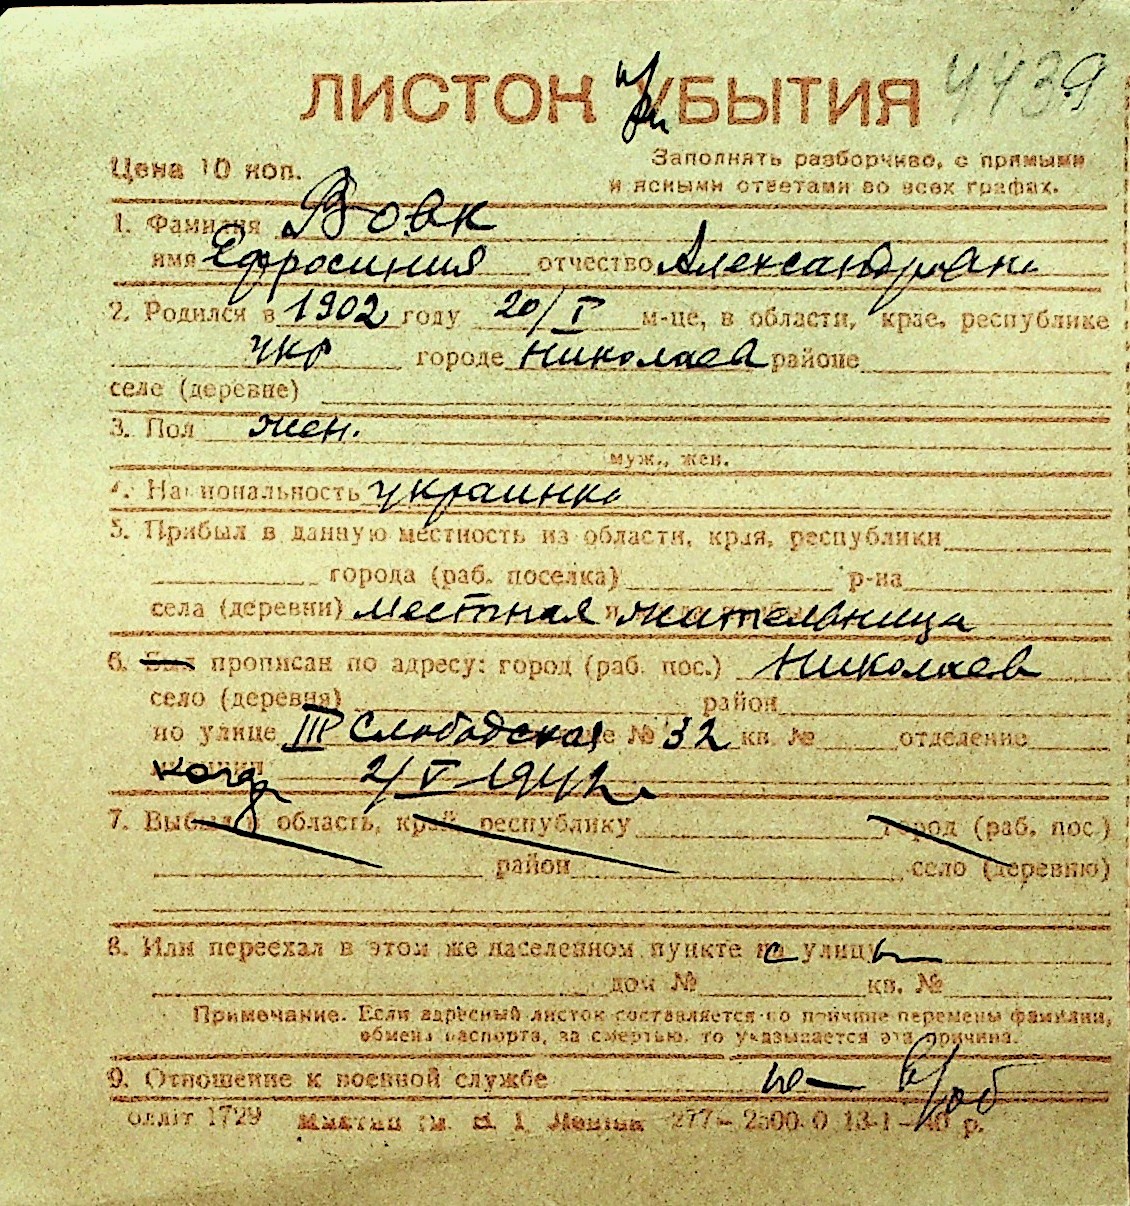 ЛИСТОК УБЫТИЯ при 4439
Цена 10 коп. Заполнять разборчиво, с прямыми
и ясными ответами во всех графах.
1. Фамилия Вовк
имя Ефросиния отчество Александровн.
2. Родился в 1902 году 20/I м-це, в области, крае, республике
укр городе Николаев районе
селе (деревне)
3. Пол жен.
муж., жен.
4. Национальность украинка
5. Прибыл в данную местность из области, края, республики
города (раб. поселка) р-на
села (деревни) местная жительница
6. Был прописан по адресу: город (раб. пос.) Николаев
село (деревня) район
по улице III Слободская № 32 кв. № отделение
когда 2/V 1942
7. Выбыл в область, край, республику город (раб. пос.)
район село (деревню)
8. Или переехал в этом же населенном пункте с улицы
дом № кв. №
Примечание. Если адресный листок составляется по причине перемены фамилии,
обмена паспорта, за смертью, то указывается эта причина.
9. Отношение к военной службе не в/об
олліт 1729 277— 2500.0 13-1—40 р.